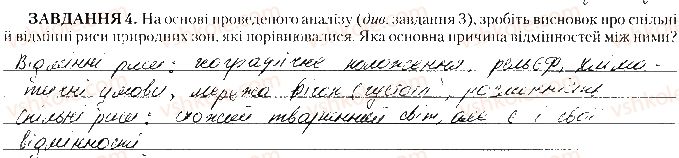 ЗАВДАННЯ 4. На основі проведеного аналізу (див. завдання 3), зробіть висновок про спільні
й відмінні риси природних зон, які порівнювалися. Яка основна причина відмінностей між ними?
Відмінні риси: географічне положення, рельєф, кліма-
тичні умови, мережа річок (густота), рослинність
Спільні риси: схожий тваринний світ, але є і свої
відмінності